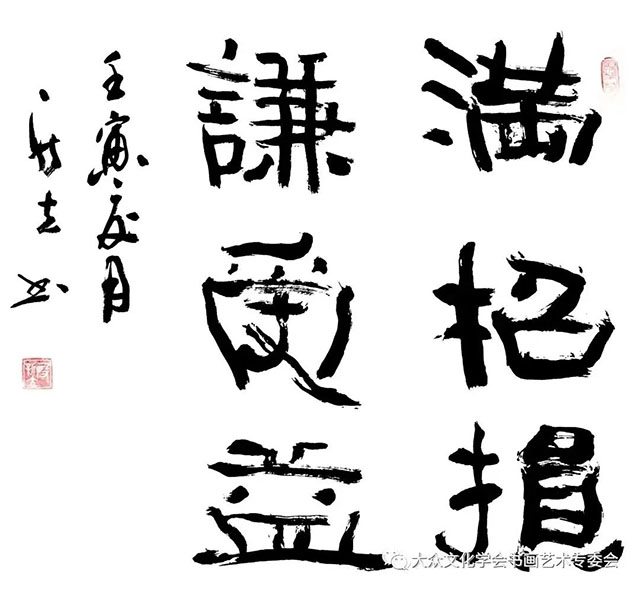 满招损
謙受益
壬寅夏月
志书
大众文化学会书画艺术专委会